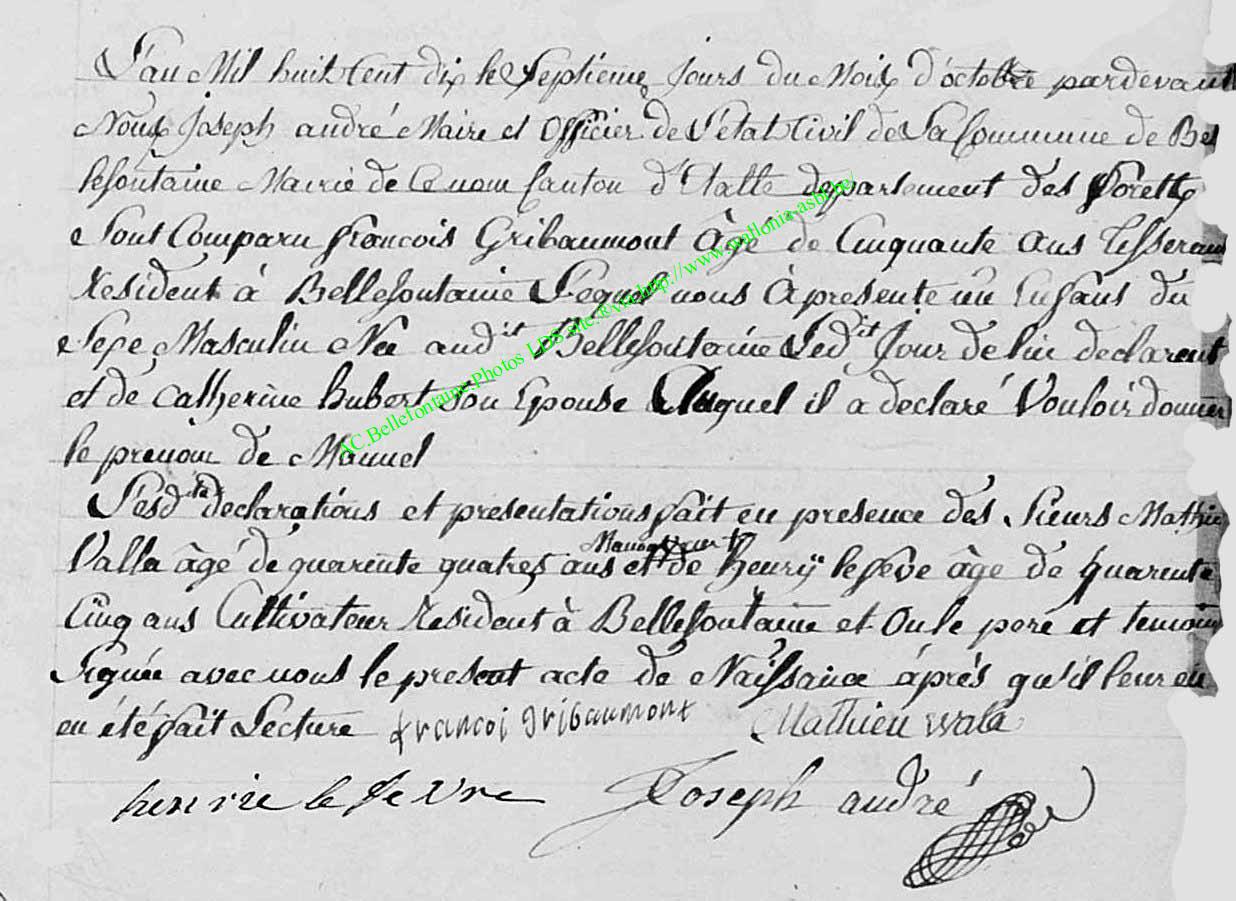 L'an Mil huit Cent dix le Septieme Jours du Mois d'octobre pardevant
Nous Joseph andré Maire et Officier de L'état Civil de La Commune de Bel
lefontaine Mairie de Ce nom Canton d'Etalle departement des Forette
Sont Comparu francois Gribaumont Âgé de Cinquante ans Tisserans
Resident à Bellefontaine Lequel nous à presenté un Enfans du
Sexe Masculin Née aud.it Bellefontaine Led.it Jour de lui declarent
et de Catherine hubert son Epouse Auquel il a declaré Vouloir donner
le prenom de Manuel
Lesd.ite declarations et presentations fait en presence des Sieurs Mathieu
Valla âgé de quarente quatres ans Manoeuvre et de Henrÿ lefeve âge de quarente
Cinq ans Cultivateur Resident à Bellefontaine et On le pere et temoins
Signée avec nous le present acte de Naissance áprés qu'il leur en
en été fait Lecture francoi gribaumont Mathieu wala
henrie le fe vre Joseph andré
AC.Bellefontaine.Photos LDS site:©via http://www.wallonia-asbl.be/